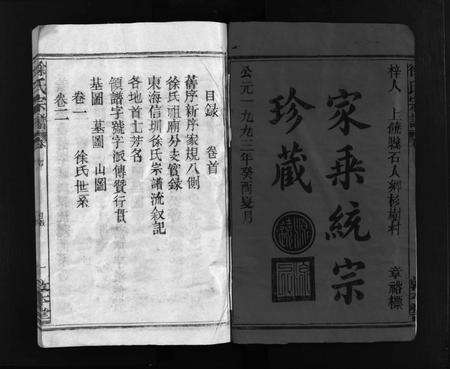 梓人 上饒縣石人鄉杉樹村 章裕標
家乘統宗
珍藏
公元一九九三年癸酉夏月
目錄 卷首
舊序新序家規八則
徐氏祖廟外支管錄
東海信圳徐氏宗譜流敘記
各地首士芳名
領譜字號字派傳贊行實
基圖 墓圖 山圖
卷一 徐氏世系
卷二
徐氏宗譜